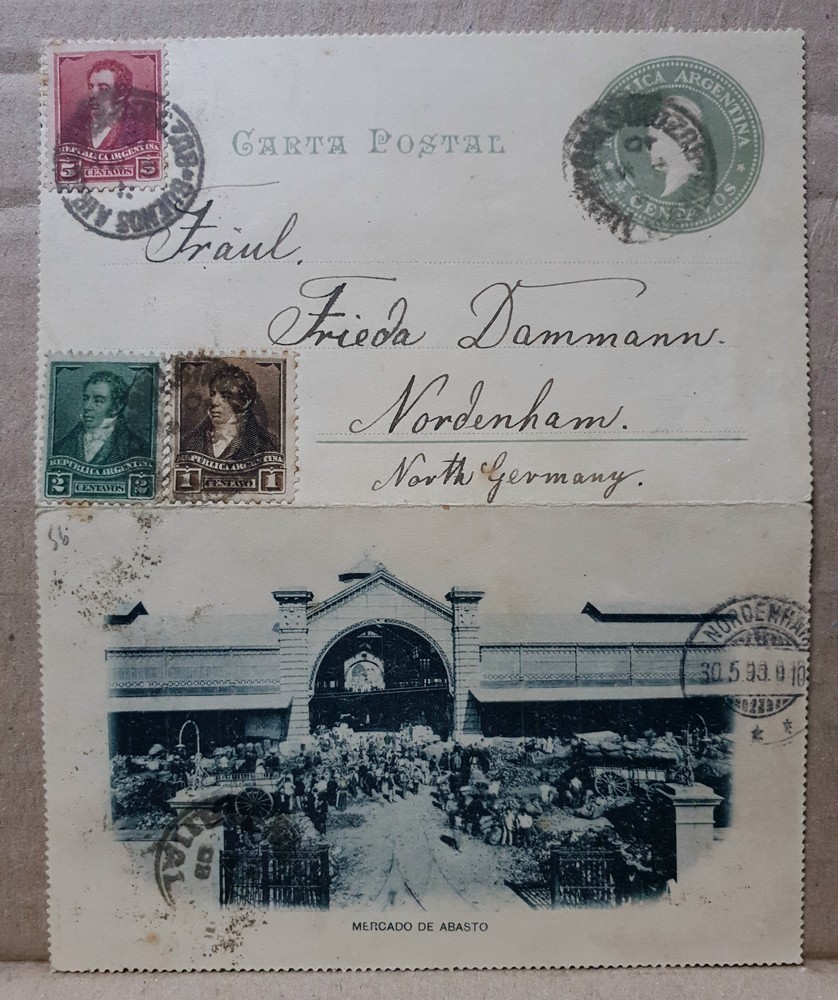 REPUBLICA ARGENTINA
5 CENTAVOS 5
BUZON
BUENOS AIR
CARTA POSTAL
ARGENTINA
CENTAVOS
BUZON
Fräul.
Frieda Dammann.
Nordenham.
North Germany.
REPUBLICA ARGENTINA
2 CENTAVOS 2
REPUBLICA ARGENTINA
1 CENTAVO 1
NORDENHA
30.5.
MERCADO DE ABASTO